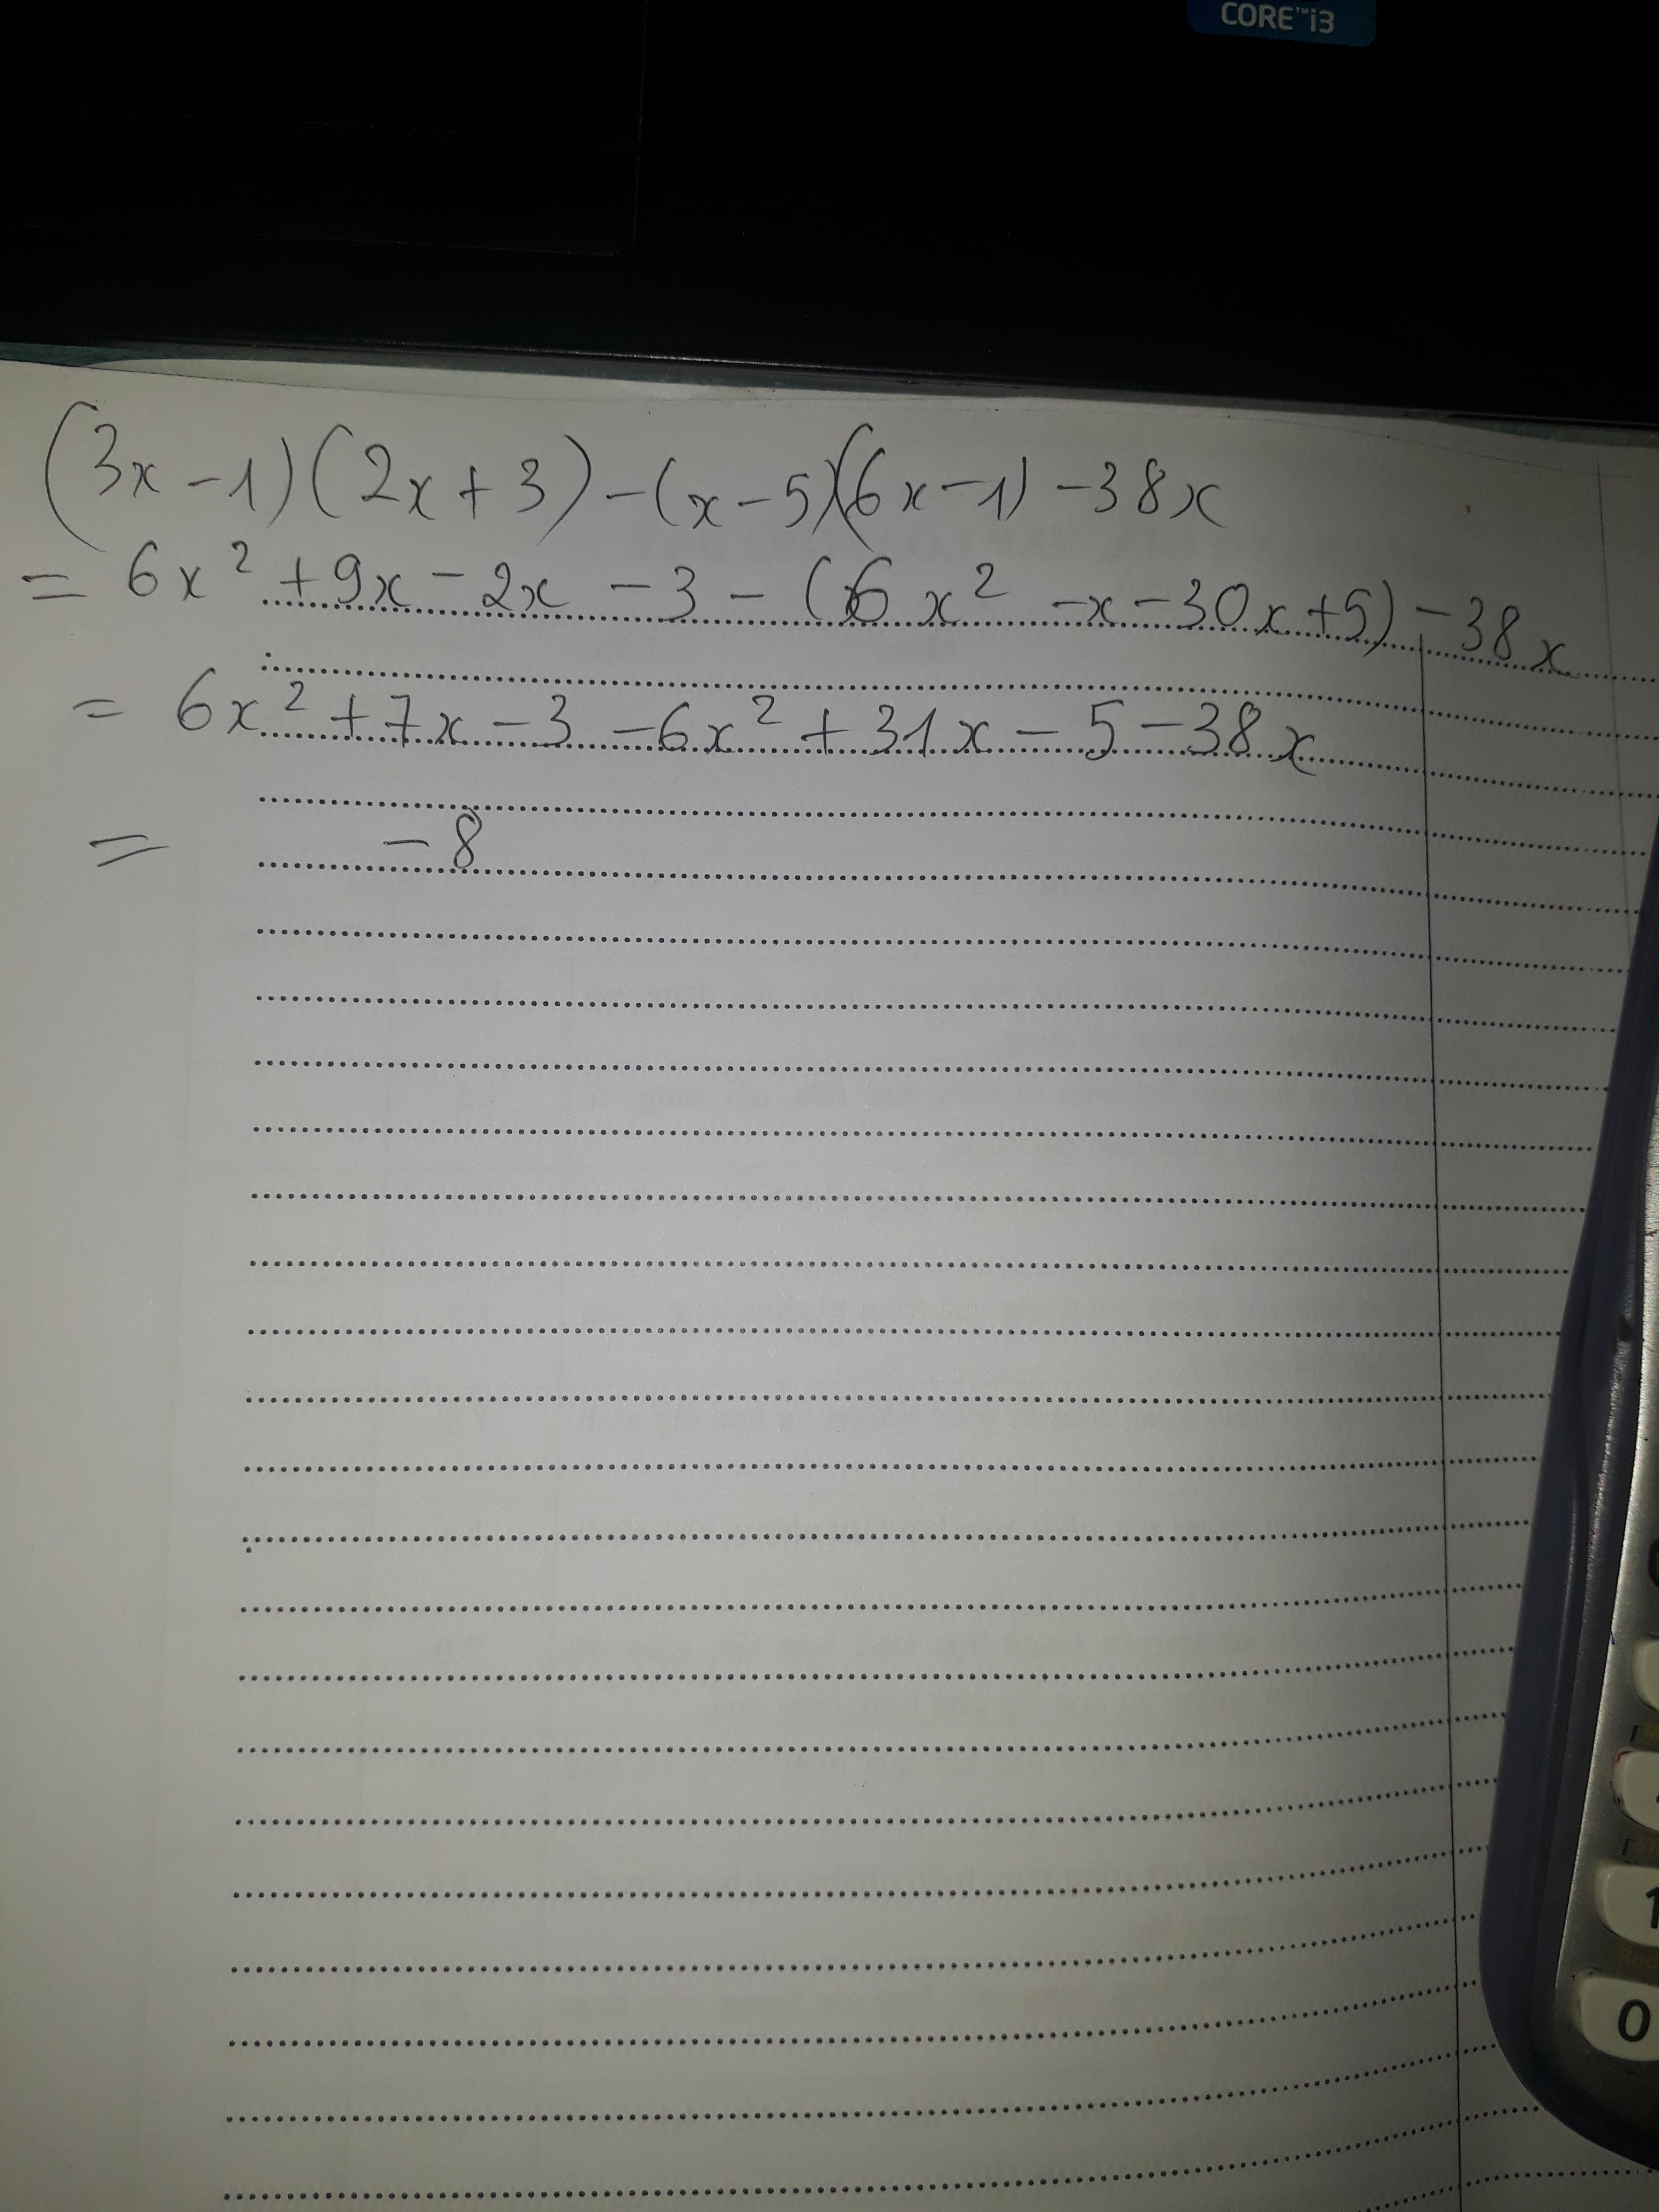 CORE™ i3
(3x - 1)(2x + 3) - (x - 5)(6x - 1) - 38x
= 6x² + 9x - 2x - 3 - (6x² - x - 30x + 5) - 38x
= 6x² + 7x - 3 - 6x² + 31x - 5 - 38x
= - 8
1
Rnd
0